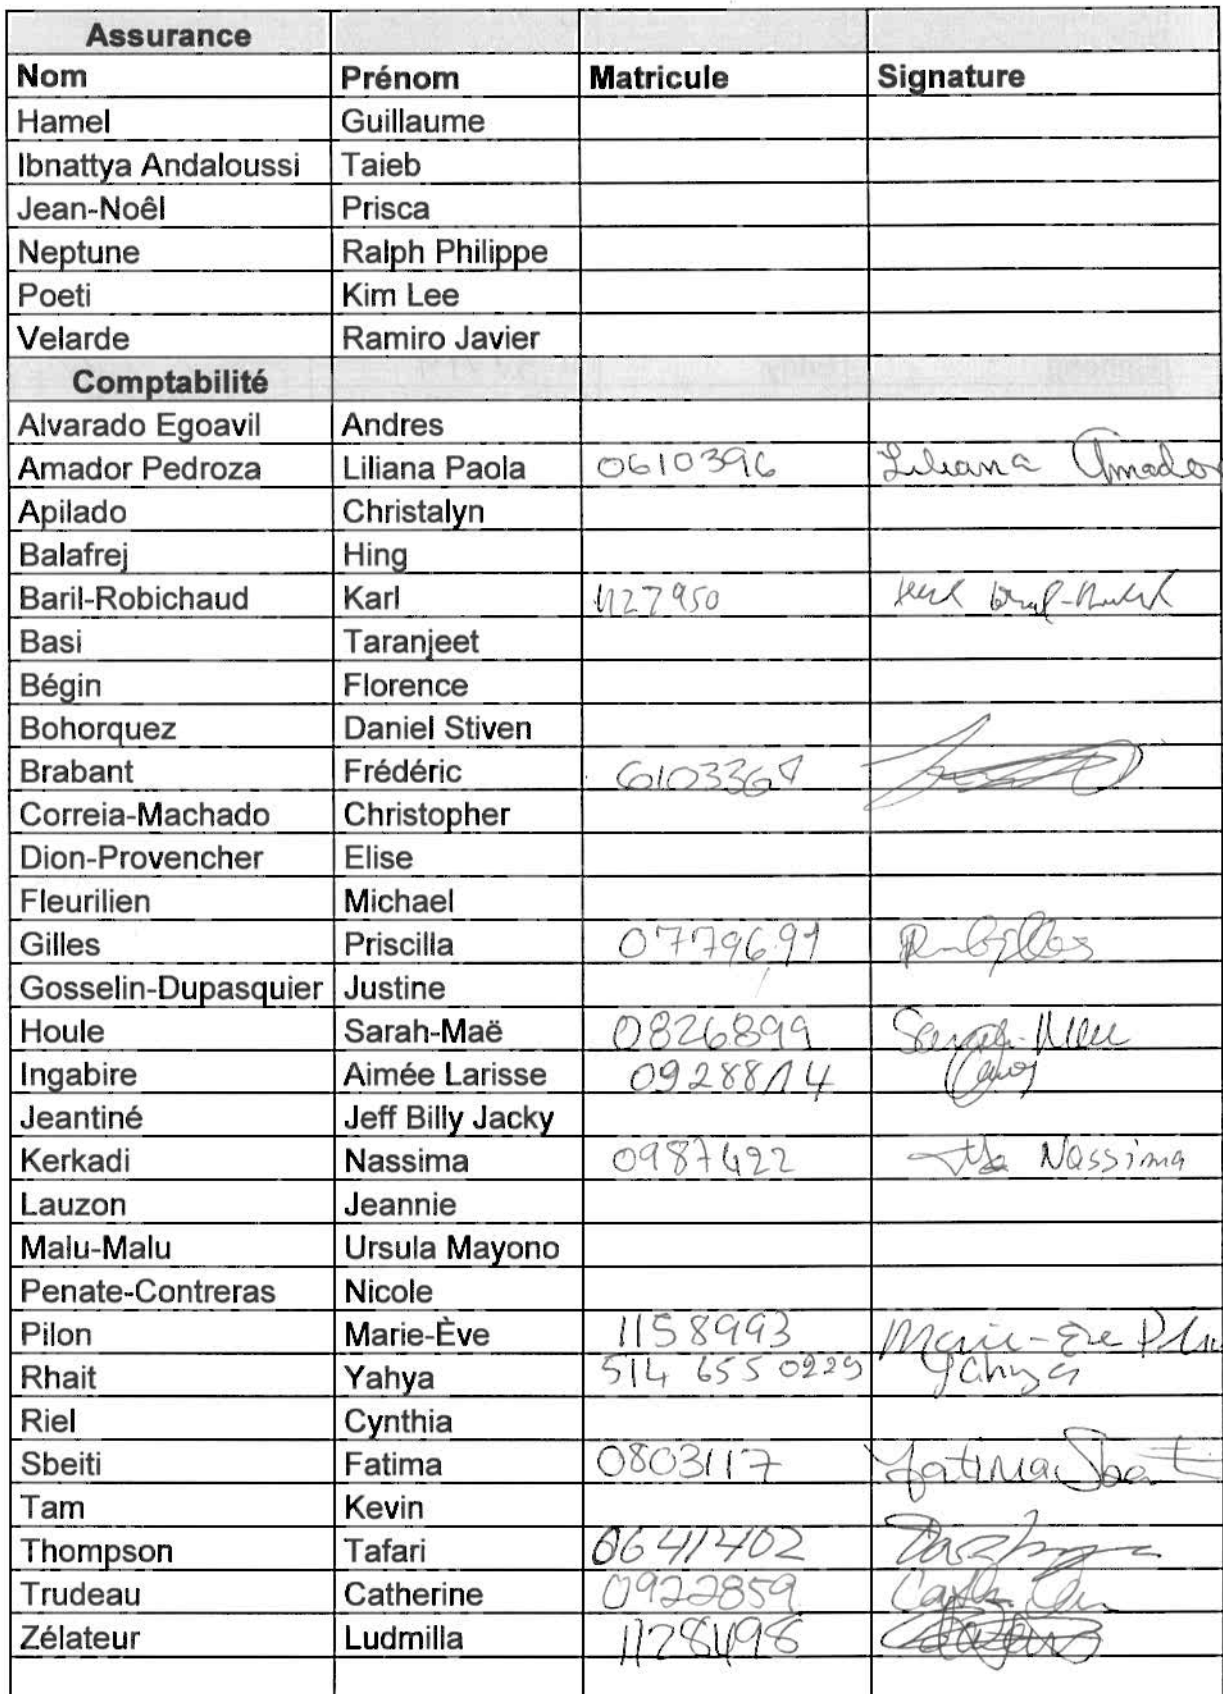 Assurance
Nom Prénom Matricule Signature
Hamel Guillaume
Ibnattya Andaloussi Taieb
Jean-Noêl Prisca
Neptune Ralph Philippe
Poeti Kim Lee
Velarde Ramiro Javier
Comptabilité
Alvarado Egoavil Andres
Amador Pedroza Liliana Paola 0610396 Liliana Amador
Apilado Christalyn
Balafrej Hing
Baril-Robichaud Karl 1127950
Basi Taranjeet
Bégin Florence
Bohorquez Daniel Stiven
Brabant Frédéric
Correia-Machado Christopher
Dion-Provencher Elise
Fleurilien Michael
Gilles Priscilla 0779691
Gosselin-Dupasquier Justine
Houle Sarah-Maë 0826899
Ingabire Aimée Larisse 0928814
Jeantiné Jeff Billy Jacky
Kerkadi Nassima 0987422 Nassima
Lauzon Jeannie
Malu-Malu Ursula Mayono
Penate-Contreras Nicole
Pilon Marie-Ève 1158993 Marie-Eve
Rhait Yahya 514 655 0229 Yahya
Riel Cynthia
Sbeiti Fatima 0803117 Fatima
Tam Kevin
Thompson Tafari 0641402
Trudeau Catherine 0922859
Zélateur Ludmilla 1128498